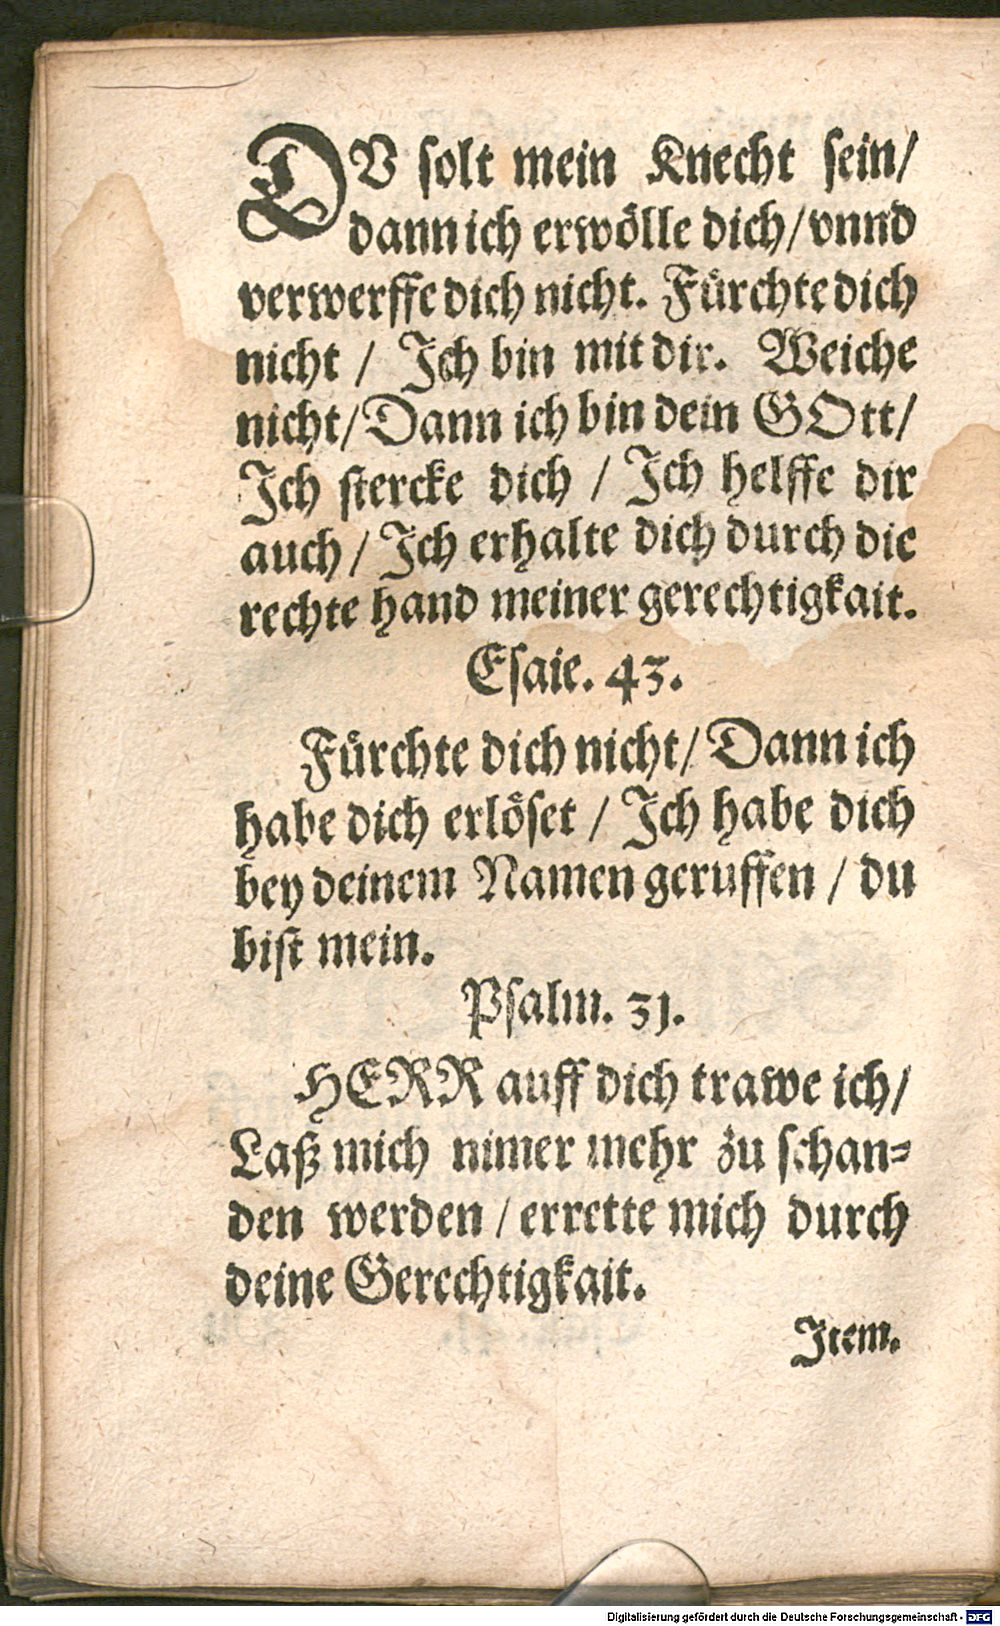 DV solt mein Knecht sein/
dann ich erwölle dich/ vnnd
verwerffe dich nicht. Fürchte dich
nicht / Ich bin mit dir. Weiche
nicht/ Dann ich bin dein GOtt/
Ich stercke dich / Ich helffe dir
auch/ Ich erhalte dich durch die
rechte hand meiner gerechtigkait.
Esaie. 43.
Fürchte dich nicht/ Dann ich
habe dich erlöset / Ich habe dich
bey deinem Namen geruffen / du
bist mein.
Psalm. 31.
HERR auff dich trawe ich/
Laß mich nimer mehr zu schan-
den werden / errette mich durch
deine Gerechtigkait.
Item.
Digitalisierung gefördert durch die Deutsche Forschungsgemeinschaft - DFG